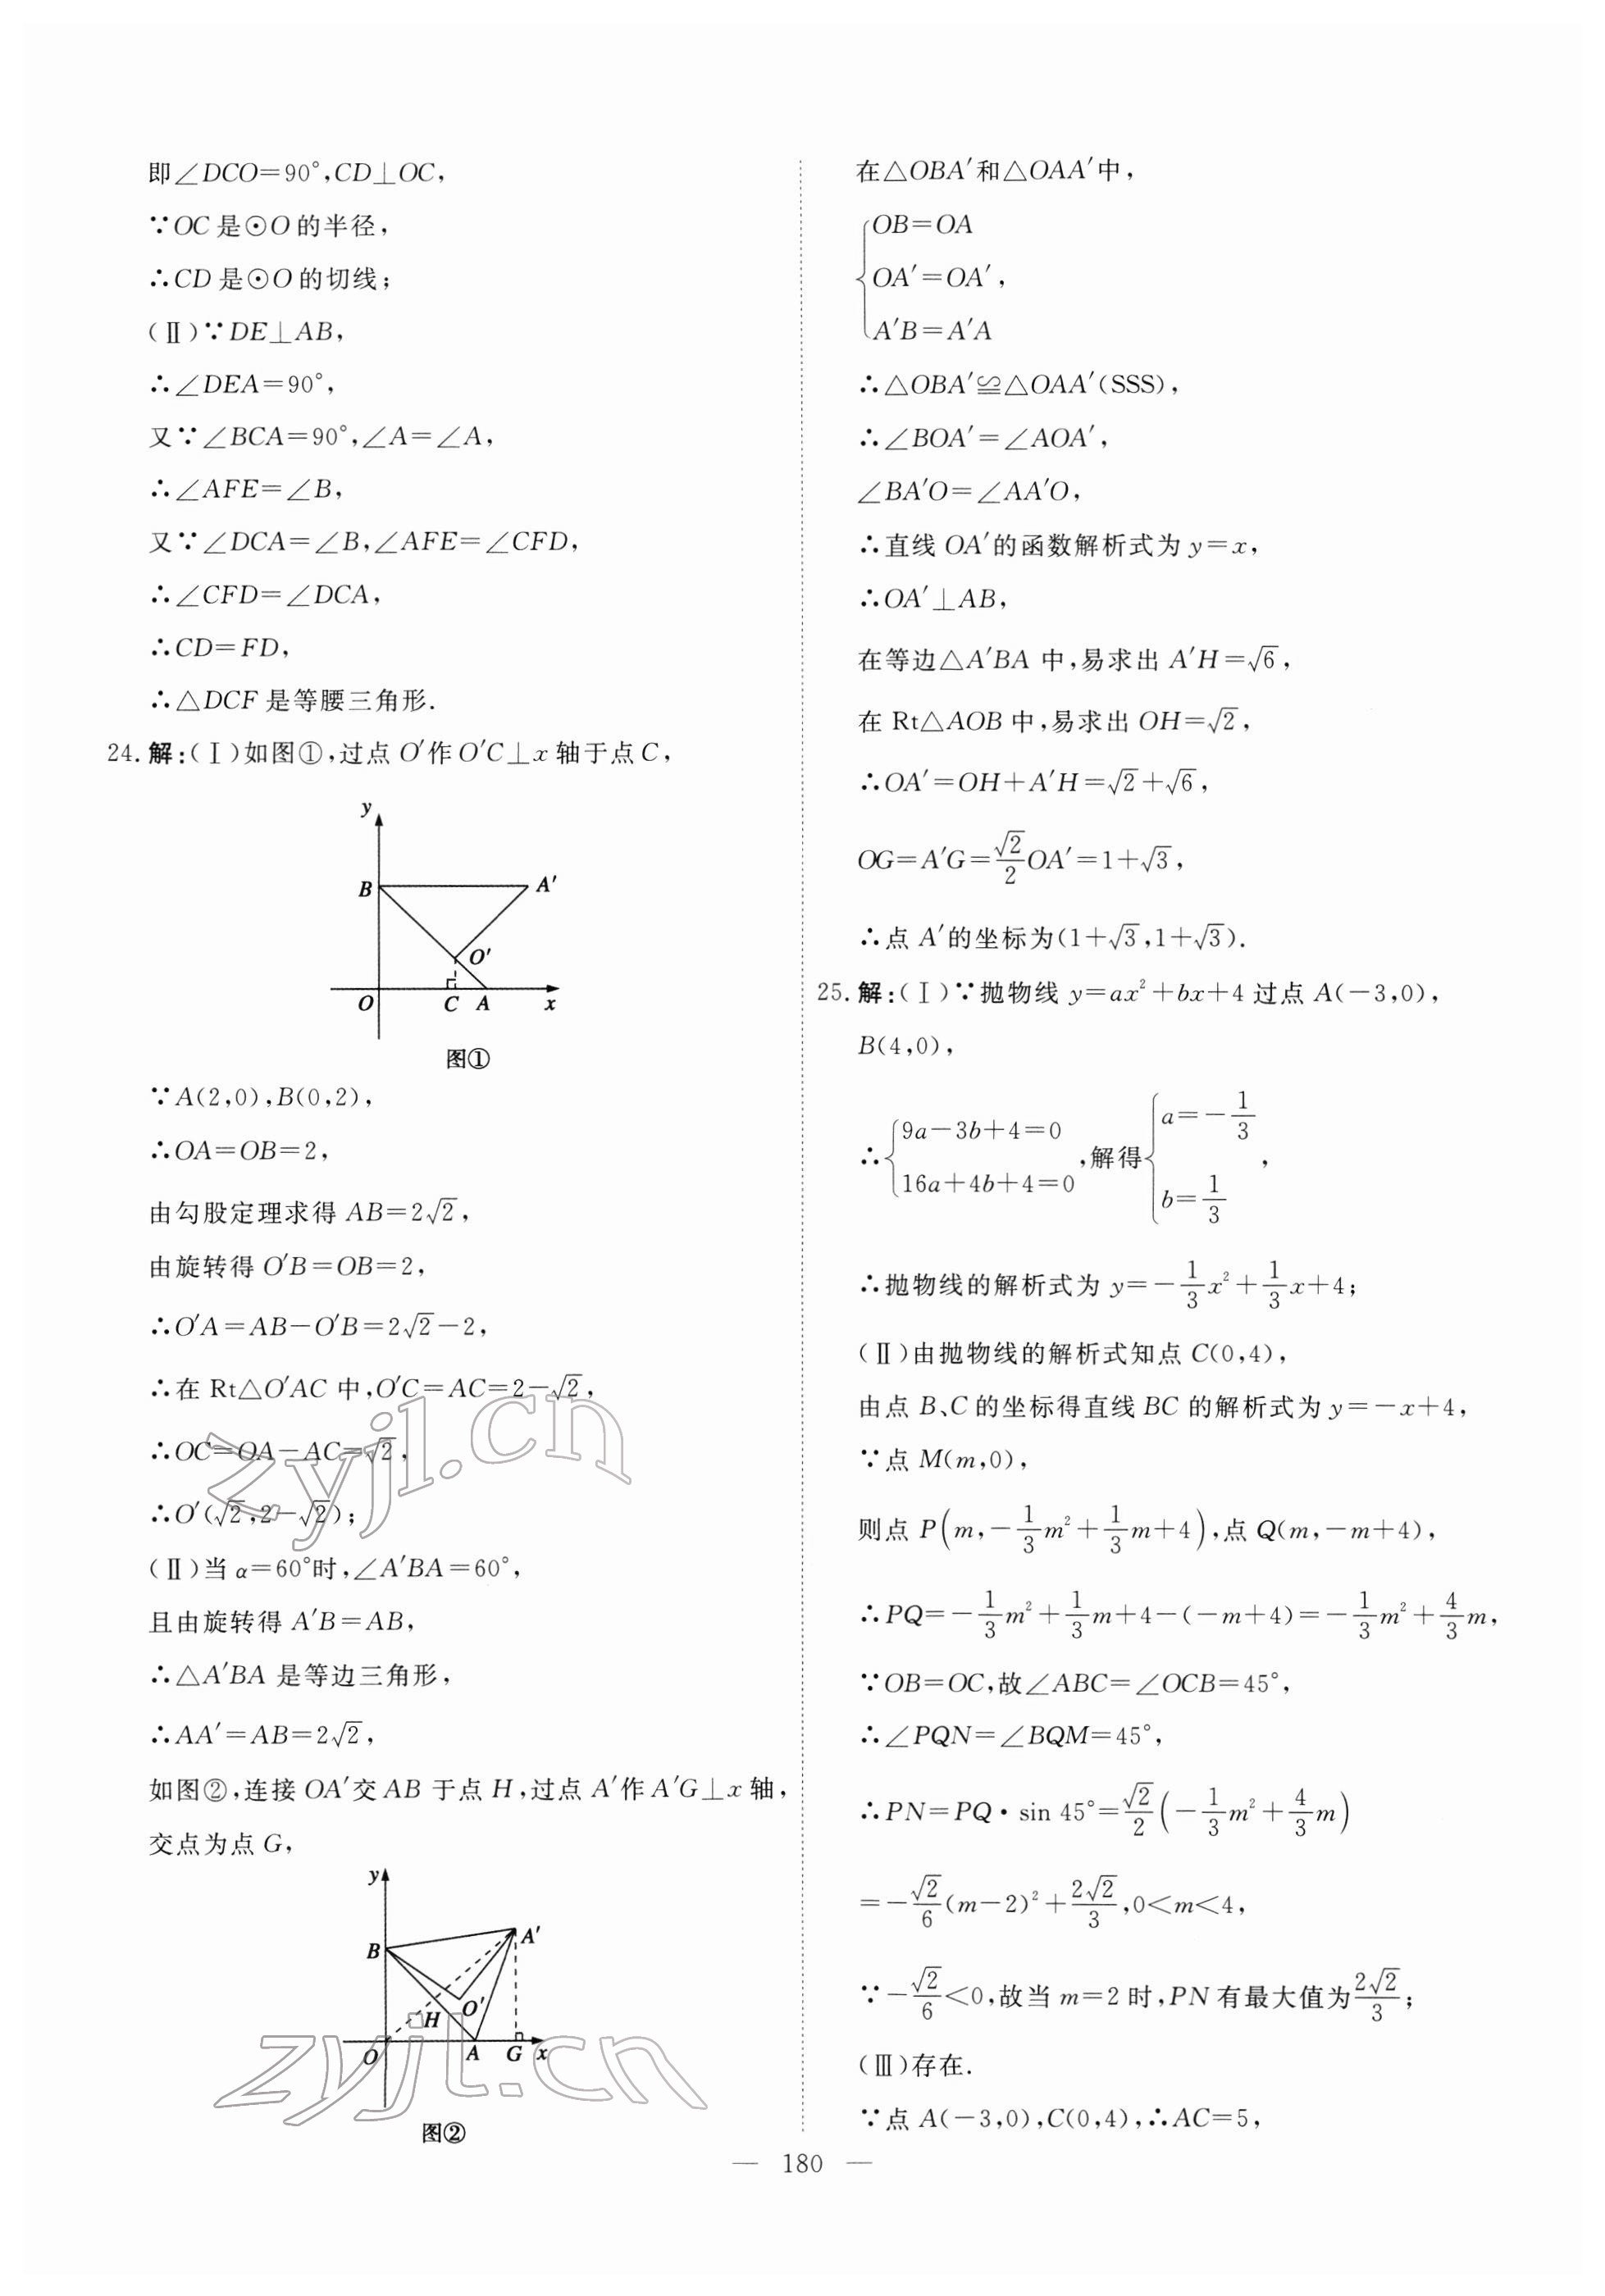 即∠DCO=90°,CD⊥OC,
∵OC是⊙O的半径,
∴CD是⊙O的切线;
(Ⅱ)∵DE⊥AB,
∴∠DEA=90°,
又∵∠BCA=90°,∠A=∠A,
∴∠AFE=∠B,
又∵∠DCA=∠B,∠AFE=∠CFD,
∴∠CFD=∠DCA,
∴CD=FD,
∴△DCF是等腰三角形.
24.解:(Ⅰ)如图①,过点O′作O′C⊥x轴于点C,
y
B A′
O′
O C A x
图①
∵A(2,0),B(0,2),
∴OA=OB=2,
由勾股定理求得AB=2√2,
由旋转得O′B=OB=2,
∴O′A=AB-O′B=2√2-2,
∴在Rt△O′AC中,O′C=AC=2-√2,
∴OC=OA-AC=√2,
∴O′(√2,2-√2);
(Ⅱ)当α=60°时,∠A′BA=60°,
且由旋转得A′B=AB,
∴△A′BA是等边三角形,
∴AA′=AB=2√2,
如图②,连接OA′交AB于点H,过点A′作A′G⊥x轴,
交点为点G,
y
B A′
O′
H
O A G x
图②
在△OBA′和△OAA′中,
{OB=OA
OA′=OA′,
A′B=A′A
∴△OBA′≌△OAA′(SSS),
∴∠BOA′=∠AOA′,
∠BA′O=∠AA′O,
∴直线OA′的函数解析式为y=x,
∴OA′⊥AB,
在等边△A′BA中,易求出A′H=√6,
在Rt△AOB中,易求出OH=√2,
∴OA′=OH+A′H=√2+√6,
OG=A′G=√2/2OA′=1+√3,
∴点A′的坐标为(1+√3,1+√3).
25.解:(Ⅰ)∵抛物线y=ax²+bx+4过点A(-3,0),
B(4,0),
∴{9a-3b+4=0 16a+4b+4=0,解得{a=-1/3 b=1/3,
∴抛物线的解析式为y=-1/3x²+1/3x+4;
(Ⅱ)由抛物线的解析式知点C(0,4),
由点B、C的坐标得直线BC的解析式为y=-x+4,
∵点M(m,0),
则点P(m,-1/3m²+1/3m+4),点Q(m,-m+4),
∴PQ=-1/3m²+1/3m+4-(-m+4)=-1/3m²+4/3m,
∵OB=OC,故∠ABC=∠OCB=45°,
∴∠PQN=∠BQM=45°,
∴PN=PQ·sin 45°=√2/2(-1/3m²+4/3m)
=-√2/6(m-2)²+2√2/3,0<m<4,
∵-√2/6<0,故当m=2时,PN有最大值为2√2/3;
(Ⅲ)存在.
∵点A(-3,0),C(0,4),∴AC=5,
— 180 —
zyjl.cn
zyjl.cn